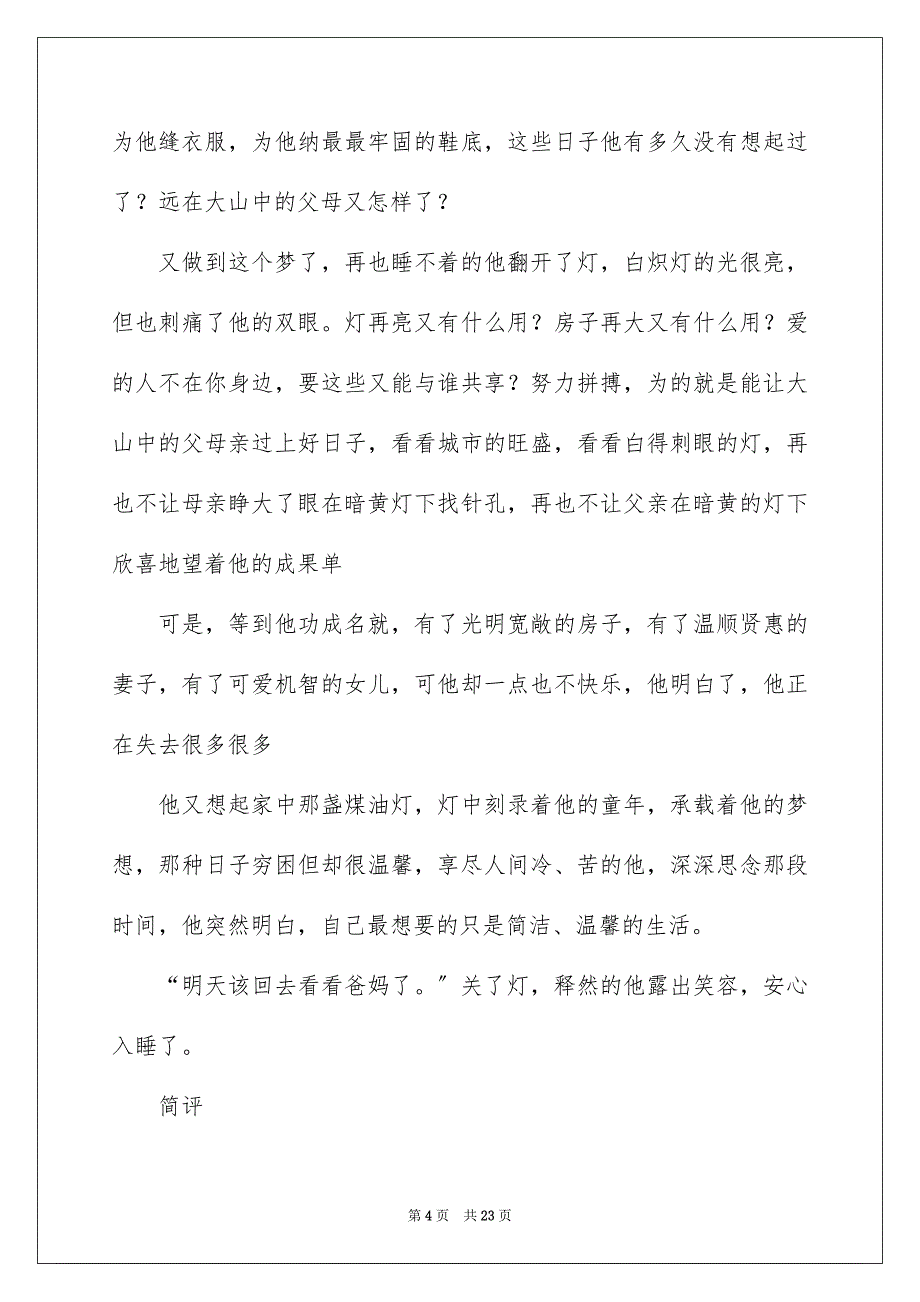 为他缝衣服，为他纳最最牢固的鞋底，这些日子他有多久没有想起过
了？远在大山中的父母又怎样了？
又做到这个梦了，再也睡不着的他翻开了灯，白炽灯的光很亮，
但也刺痛了他的双眼。灯再亮又有什么用？房子再大又有什么用？爱
的人不在你身边，要这些又能与谁共享？努力拼搏，为的就是能让大
山中的父母亲过上好日子，看看城市的旺盛，看看白得刺眼的灯，再
也不让母亲睁大了眼在暗黄灯下找针孔，再也不让父亲在暗黄的灯下
欣喜地望着他的成果单
可是，等到他功成名就，有了光明宽敞的房子，有了温顺贤惠的
妻子，有了可爱机智的女儿，可他却一点也不快乐，他明白了，他正
在失去很多很多
他又想起家中那盏煤油灯，灯中刻录着他的童年，承载着他的梦
想，那种日子穷困但却很温馨，享尽人间冷、苦的他，深深思念那段
时间，他突然明白，自己最想要的只是简洁、温馨的生活。
“明天该回去看看爸妈了。〞关了灯，释然的他露出笑容，安心
入睡了。
简评
第 4 页 共 23 页